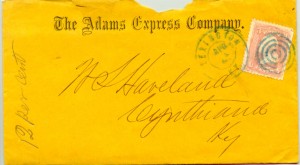 The Adams Express Company.
W S Haveland
Cynthiana
Ky
12 per cent